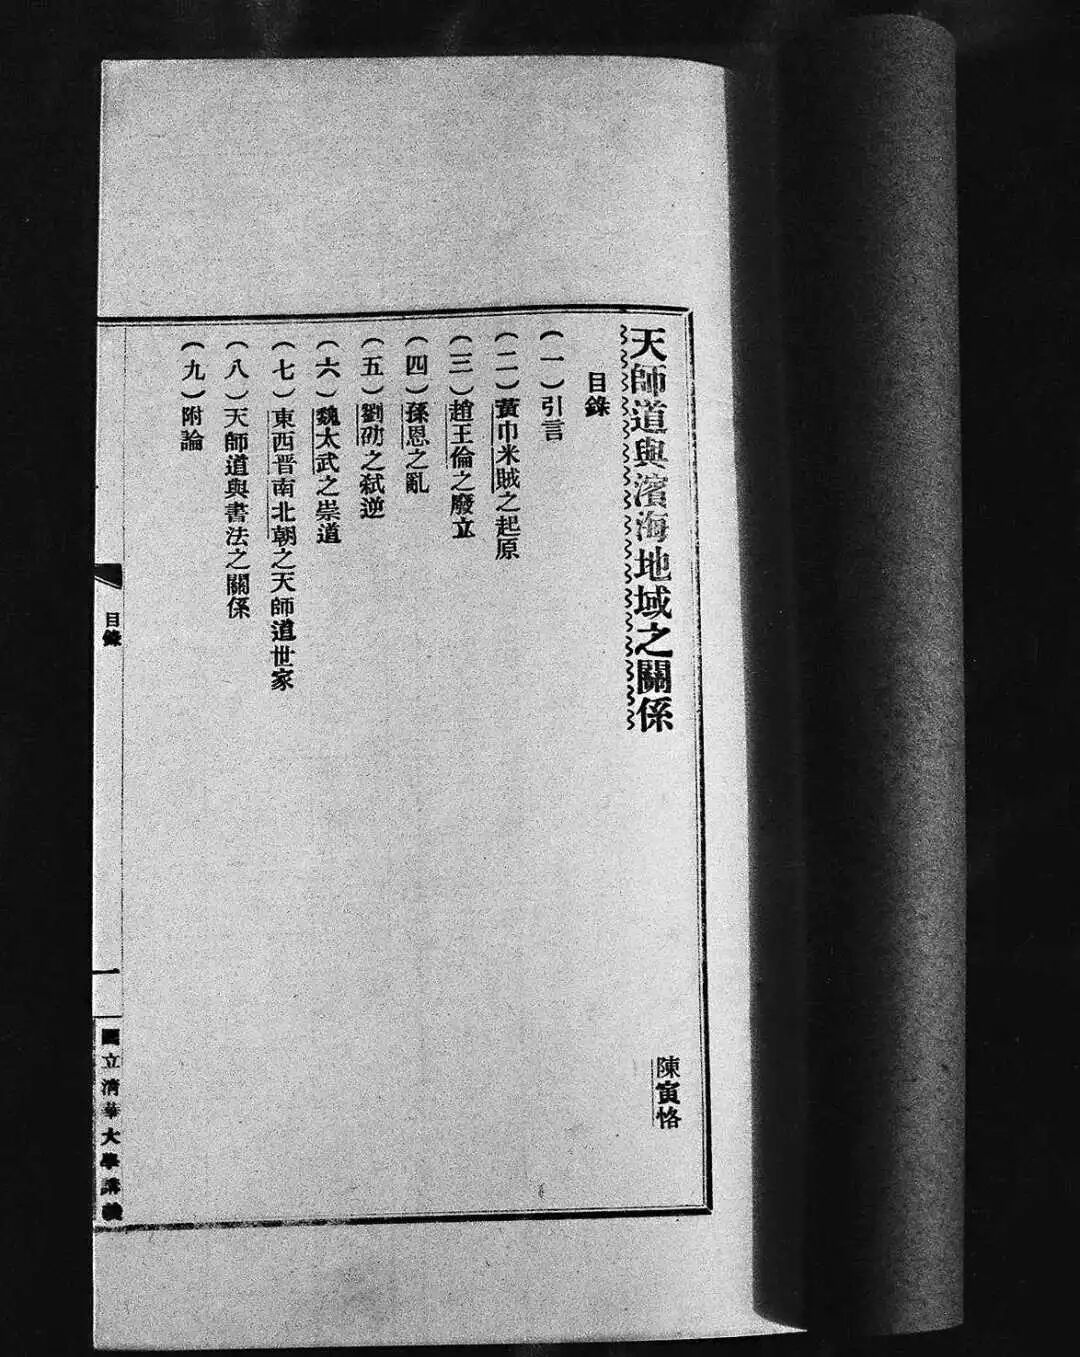 天師道與濱海地域之關係
陳寅恪
目錄
(一)引言
(二)黃巾米賊之起原
(三)趙王倫之廢立
(四)孫恩之亂
(五)劉劭之弑逆
(六)魏太武之崇道
(七)東西晋南北朝之天師道世家
(八)天師道與書法之關係
(九)附論
目錄
一
國立清華大學講義